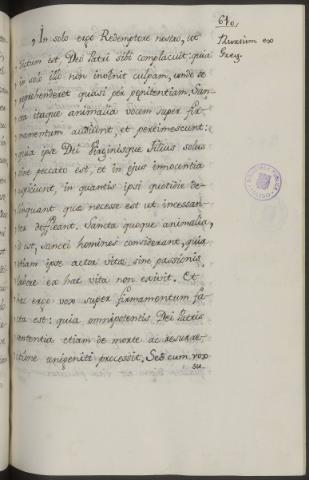 610.
Plurium ex
Greg.
In solo ergo Redemptore nostro, ut
dictum est Deo Patri sibi complacuit: quia
in solo illo non invenit culpam, unde se
reprehenderet quasi per penitentiam. San-
cta itaque animalia vocem super fir-
mamentum audiunt, et pertimescunt:
quia ipse Dei Virginisque Filius solus
sine peccato est, et in ejus innocentia
aspiciunt, in quantis ipsi quotidie de-
linquant quæ necesse est ut incessan-
ter defleant. Sancta quoque animalia,
id est, sancti homines considerant, quia
etiam ipse acta vita sine passionis
labore ex hac vita non exivit. Et
hæc ergo vox super firmamentum fa-
cta est: quia omnipotentis Dei Patris
sententia etiam de morte ac resurre-
ctione unigeniti precessit. Sed cum vox
su-